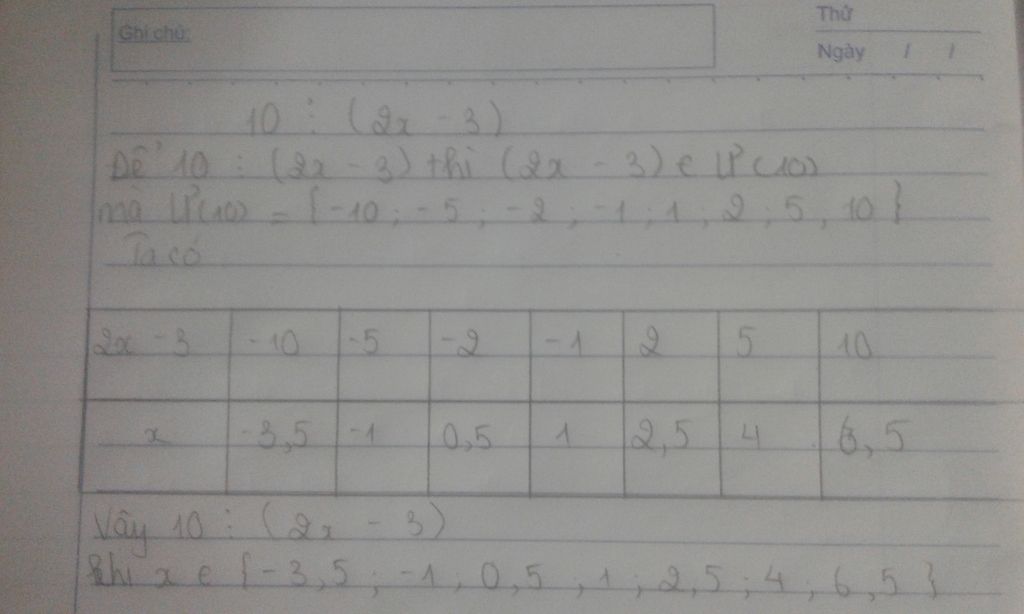 Ghi chú:
Thứ
Ngày / /
10 ⋮ (2x - 3)
Để 10 ⋮ (2x - 3) thì (2x - 3) ∈ Ư(10)
mà Ư(10) = {-10 ; -5 ; -2 ; -1 ; 1 ; 2 ; 5 , 10 }
Ta có
2x - 3 -10 -5 -2 -1 2 5 10
x -3,5 -1 0,5 1 2,5 4 6,5
Vậy 10 ⋮ (2x - 3)
khi x ∈ {-3,5 ; -1 ; 0,5 ; 1 ; 2,5 ; 4 ; 6,5 }